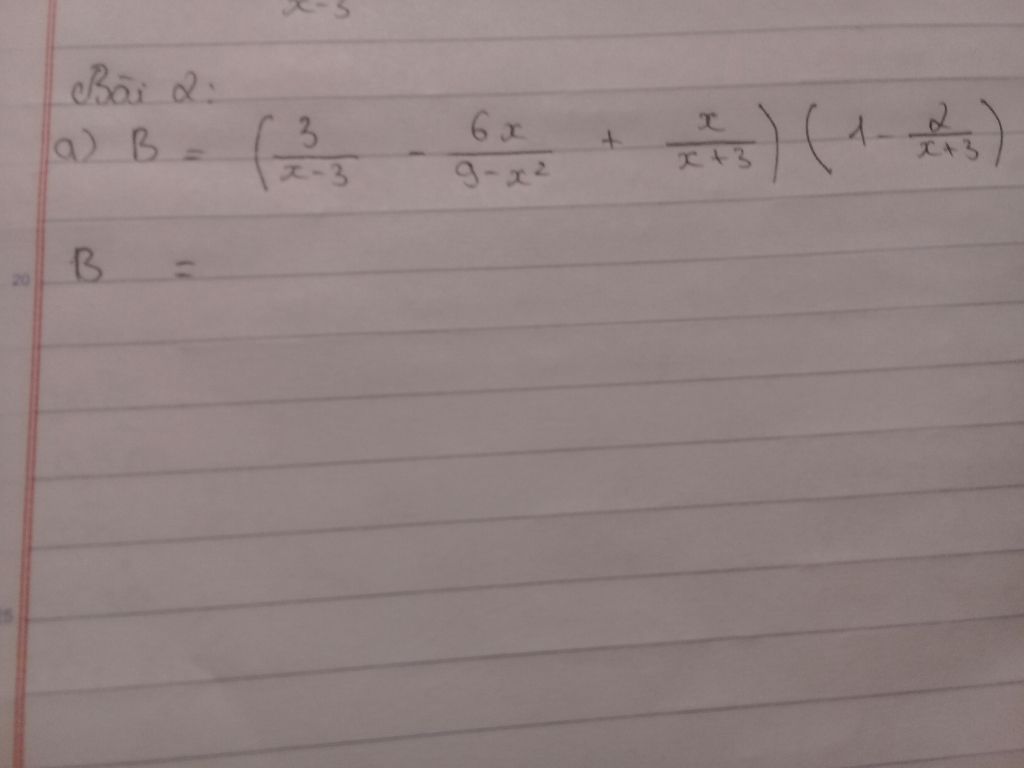 x-3
Bài 2:
a) B = (3/(x-3) - 6x/(9-x²) + x/(x+3)) (1 - 2/(x+3))
B =
20